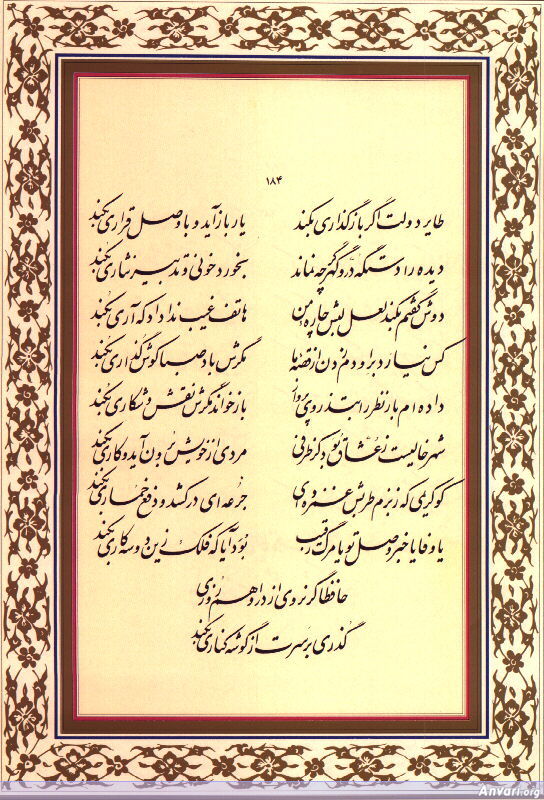 ۱۸۴
طایر دولت اگر باز گذاری بکند یار باز آید و با وصل قراری بکند
دیده را دستگه در و گهر گرچه نماند بخورد خونی و تدبیر نثاری بکند
دوش گفتم بکند لعل لبش چاره من هاتف غیب ندا داد که آری بکند
کس نیارد بر او دم زدن از قصه ما مگرش باد صبا گوش گذاری بکند
داده ام باز نظر را بتذروی پرواز باز خواند مگرش نقش و شکاری بکند
شهر خالیست ز عشاق بود کز طرفی مردی از خویش برون آید و کاری بکند
کو کریمی که ز بزم طربش غمزده ای جرعه ای درکشد و دفع خماری بکند
یا وفا یا خبر وصل تو یا مرگ رقیب بود آیا که فلک زین دو سه کاری بکند
حافظا گر نروی از در او هم روزی
گذری بر سرت از گوشه کناری بکند
Anvari.org